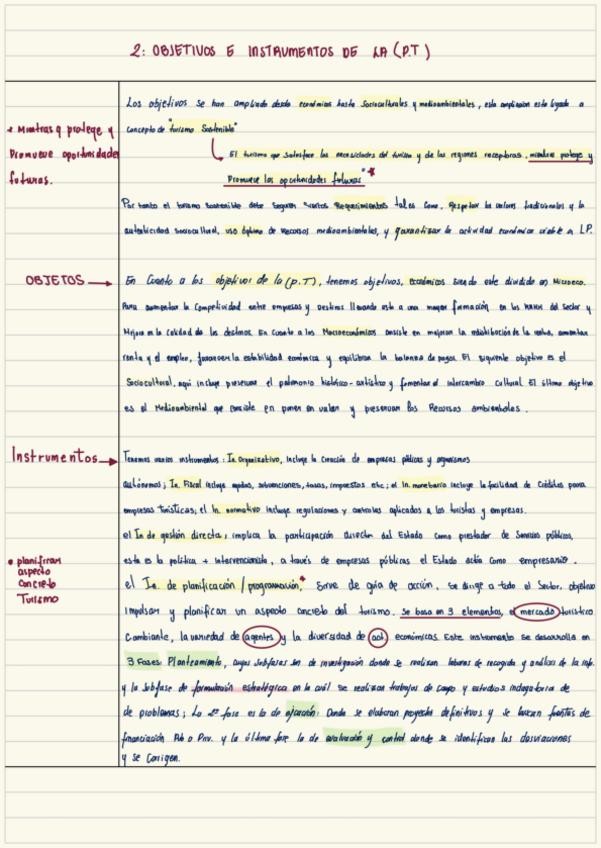 2: OBJETIVOS E INSTRUMENTOS DE LA (P.T)
Los objetivos se han ampliado desde económicos hasta Socioculturales y medioambientales, esta ampliación esta ligada a
concepto de "turismo Sostenible"
El turismo que satisface las necesidades del turismo y de las regiones receptoras, mientras protege y
Promueve las oportunidades futuras" *
* Mientras q protege y
Promueve oportunidades
futuras.
Por tanto el turismo sostenible debe seguir varios Requerimientos tales como, Respetar los valores tradicionales y la
autenticidad sociocultural, uso óptimo de recursos medioambientales, y garantizar la actividad económica viable a L.P.
OBJETOS
En Cuanto a los objetivos de la (P.T), tenemos objetivos, económicos siendo este dividido en Microeco.
Para aumentar la Competividad entre empresas y destinos llevando esto a una mayor formación en los del Sector y
Mejora en la Calidad de los destinos. En Cuanto a los Macroeconómicos consiste en mejorar la redistribución de la renta, aumentar
renta y el empleo, favorecer la estabilidad económica y equilibrar la balanza de pagos. El siguiente objetivo es el
Sociocultural, aqui incluye preservar el patrimonio histórico-artístico y fomentar el intercambio cultural. El último objetivo
es el Medioambiental que consiste en poner en valor y preservar los Recursos ambientales.
Instrumentos
Tenemos varios instrumentos: In. Organizativo, incluye la Creación de empresas públicas y organismos
autónomos; In. Fiscal incluye ayudas, subvenciones, tasas, impuestos etc; el In. monetario incluye la facilidad de Créditos para
empresas turísticas; el In. normativo incluye regulaciones y controles aplicados a los turistas y empresas.
el In de gestión directa, implica la participación directa del Estado como prestador de Servicios públicos,
esta es la política + intervencionista, a través de empresas públicas el Estado actúa como empresario.
el In. de planificación / programación,* Sirve de guía de acción, se dirige a todo el Sector, objetivo
* planificar
aspecto
Concreto
Turismo
Impulsar y planificar un aspecto concreto del turismo. Se basa en 3 elementos, el mercado turístico
Cambiante, la variedad de agentes y la diversidad de act económicas. Este instrumento se desarrolla en
3 Fases: Planteamiento, cuyas subfases son de investigación donde se realizan labores de recogida y análisis de la info.
y la subfase de formulación estratégica en la cuál se realizan trabajos de campo y estudios de
de problemas; La 2ª fase es la de ejecución: Donde se elaboran proyectos definitivos y se buscan fuentes de
financiación Pub o Priv. y la última fase la de evaluación y control donde se identifican las desviaciones
y se Corrigen.